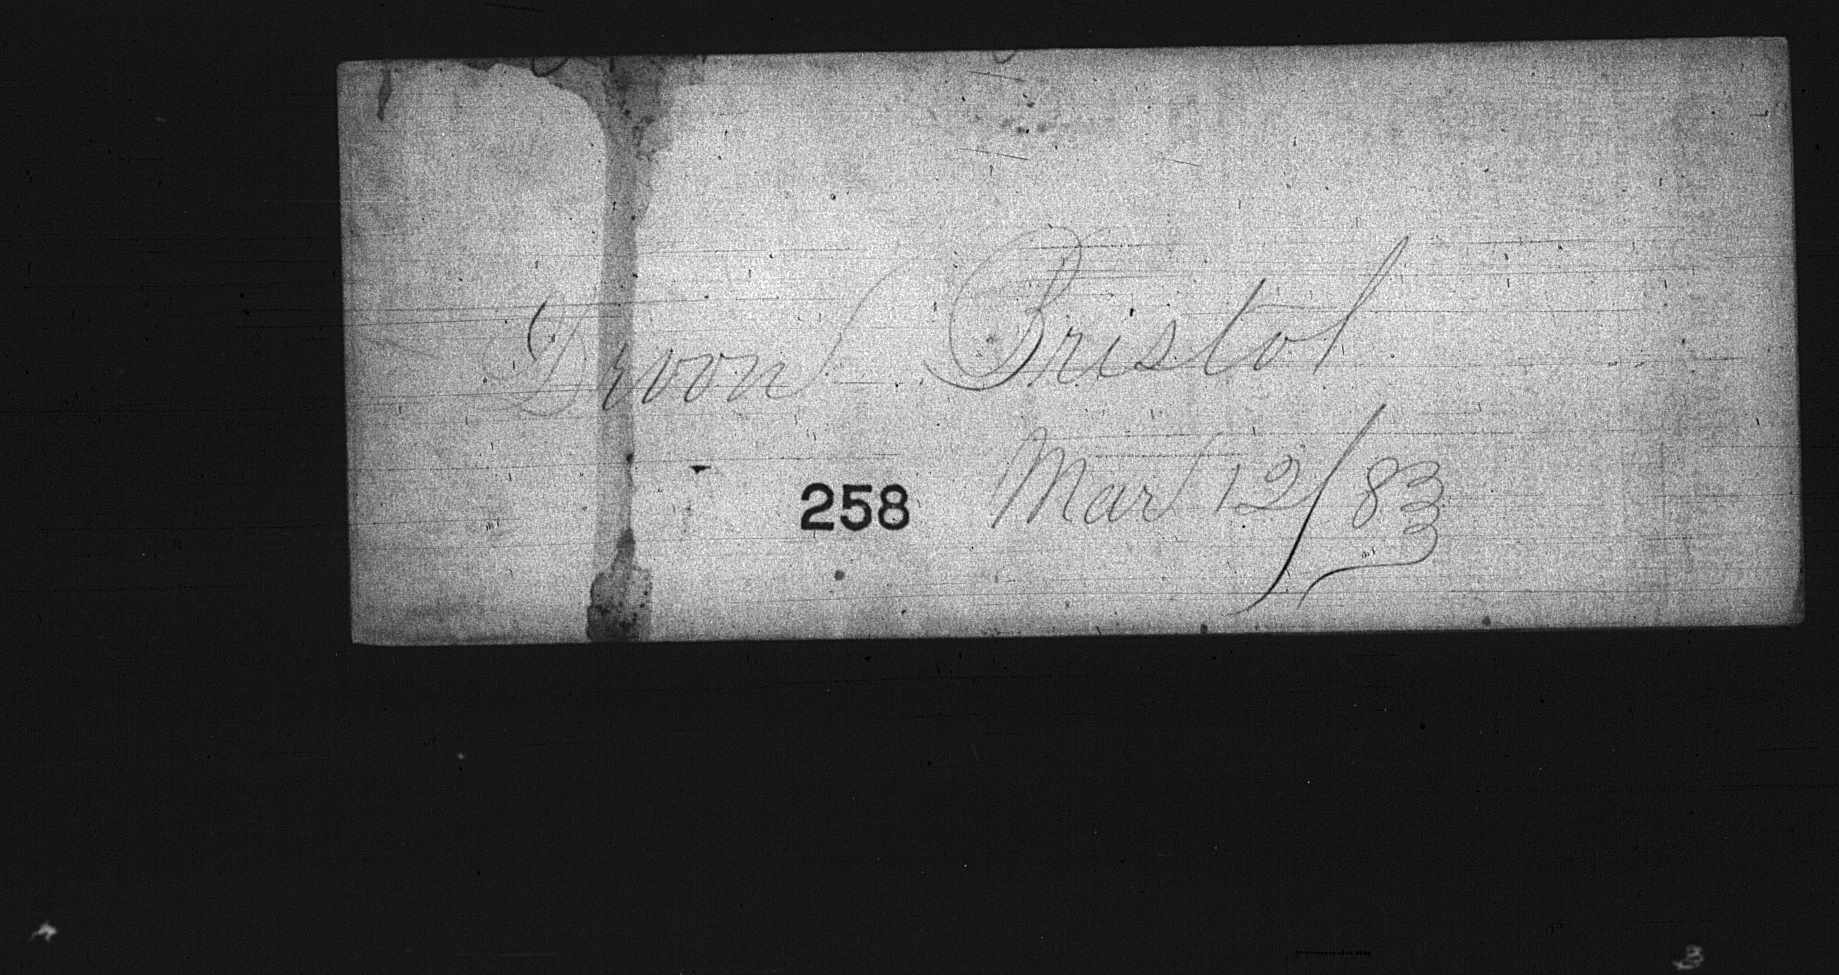 Devon Bristol
258 Mar 12/83